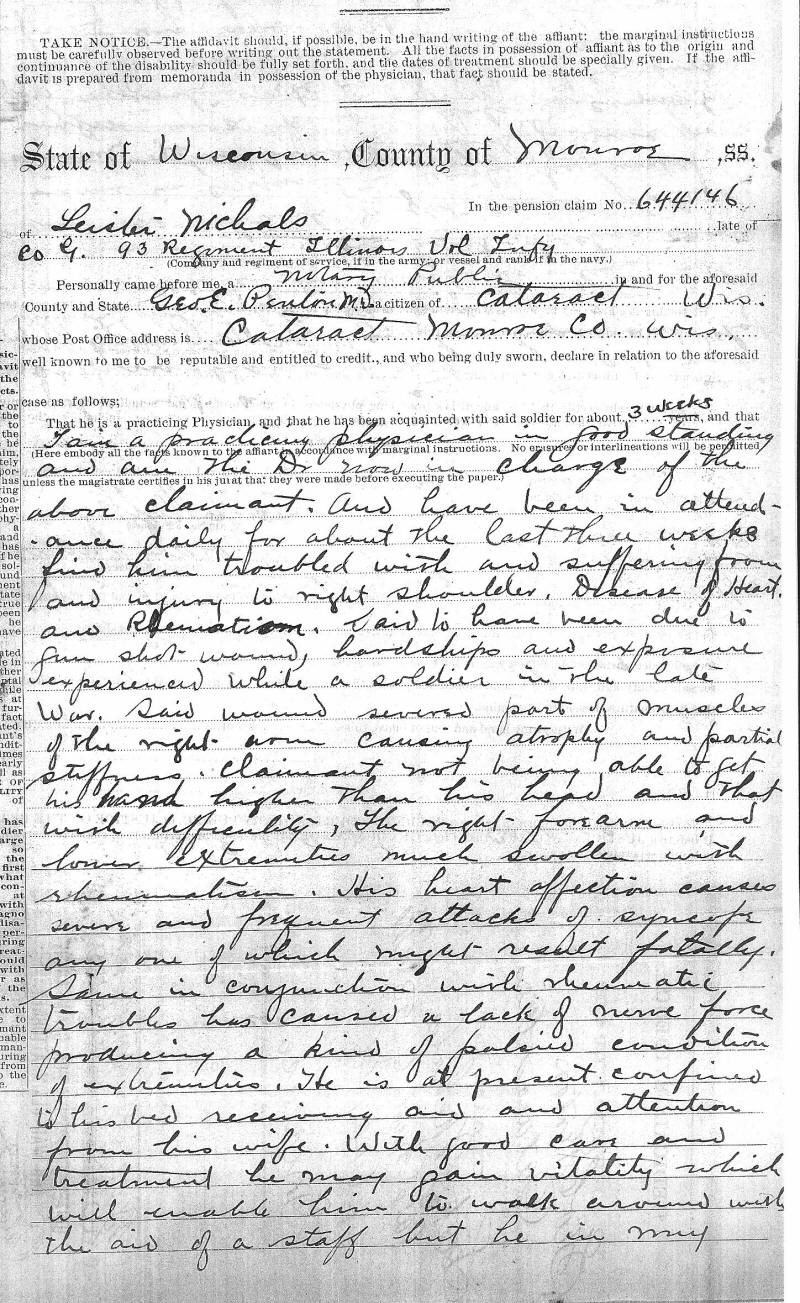 TAKE NOTICE.—The affidavit should, if possible, be in the hand writing of the affiant: the marginal instructions
must be carefully observed before writing out the statement. All the facts in possession of affiant as to the origin and
continuance of the disability should be fully set forth, and the dates of treatment should be specially given. If the affi-
davit is prepared from memoranda in possession of the physician, that fact should be stated.
State of Wisconsin, County of Monroe, ss.
In the pension claim No. 644146
of Leister Nichols late of
Co G. 93 Regiment Illinois Vol Infy
(Company and regiment of service, if in the army; or vessel and rank if in the navy.)
Personally came before me, a Notary Public in and for the aforesaid
County and State Geo. E. Penton M.D. a citizen of Cataract Wis.
whose Post Office address is Cataract Monroe Co. Wis.,
well known to me to be reputable and entitled to credit., and who being duly sworn, declare in relation to the aforesaid
case as follows;
That he is a practicing Physician, and that he has been acquainted with said soldier for about 3 weeks years, and that
I am a practicing physician in good standing
(Here embody all the facts known to the affiant in accordance with marginal instructions. No erasures or interlineations will be permitted
and am the Dr now in charge of the
unless the magistrate certifies in his jurat that they were made before executing the paper.)
above claimant. And have been in attend-
ance daily for about the last three weeks
find him troubled with and suffering from
and injury to right shoulder, Disease of Heart.
and Rheumatism. Said to have been due to
gun shot wound, hardships and exposure
experienced while a soldier in the late
War. Said wound severed part of muscles
of the right arm causing atrophy and partial
stiffness. Claimant not being able to get
his hand higher than his head and that
with difficulity, The right forearm and
lower extremities much swollen with
rheumatism. His heart affection causes
severe and frequent attacks of syncope
any one of which might result fatally.
Same in conjunction with rheumatic
troubles has caused a lack of nerve force
producing a kind of palsied condition
of extremities. He is at present confined
to his bed receiving aid and attention
from his wife. With good care and
treatment he may gain vitality which
will enable him to walk around with
the aid of a staff but he in my